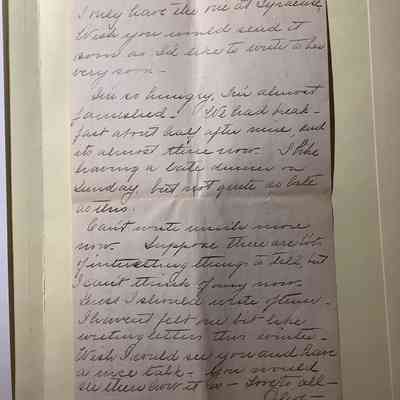 I only have the one at Syracuse,
Wish you would send it
soon as I'd like to write to her
very soon -
I'm so hungry, I'm almost
famished. We had break-
fast about half after nine, and
its almost three now. I like
having a late dinner on
Sunday, but not quite so late
as this.
Can't write much more
now. Suppose there are lots
of interesting things to tell, but
I can't think of any now.
Guess I should write oftener -
I haven't felt one bit like
writing letters this winter -
Wish I could see you and have
a nice talk - You would
see then how it is - Love to all -